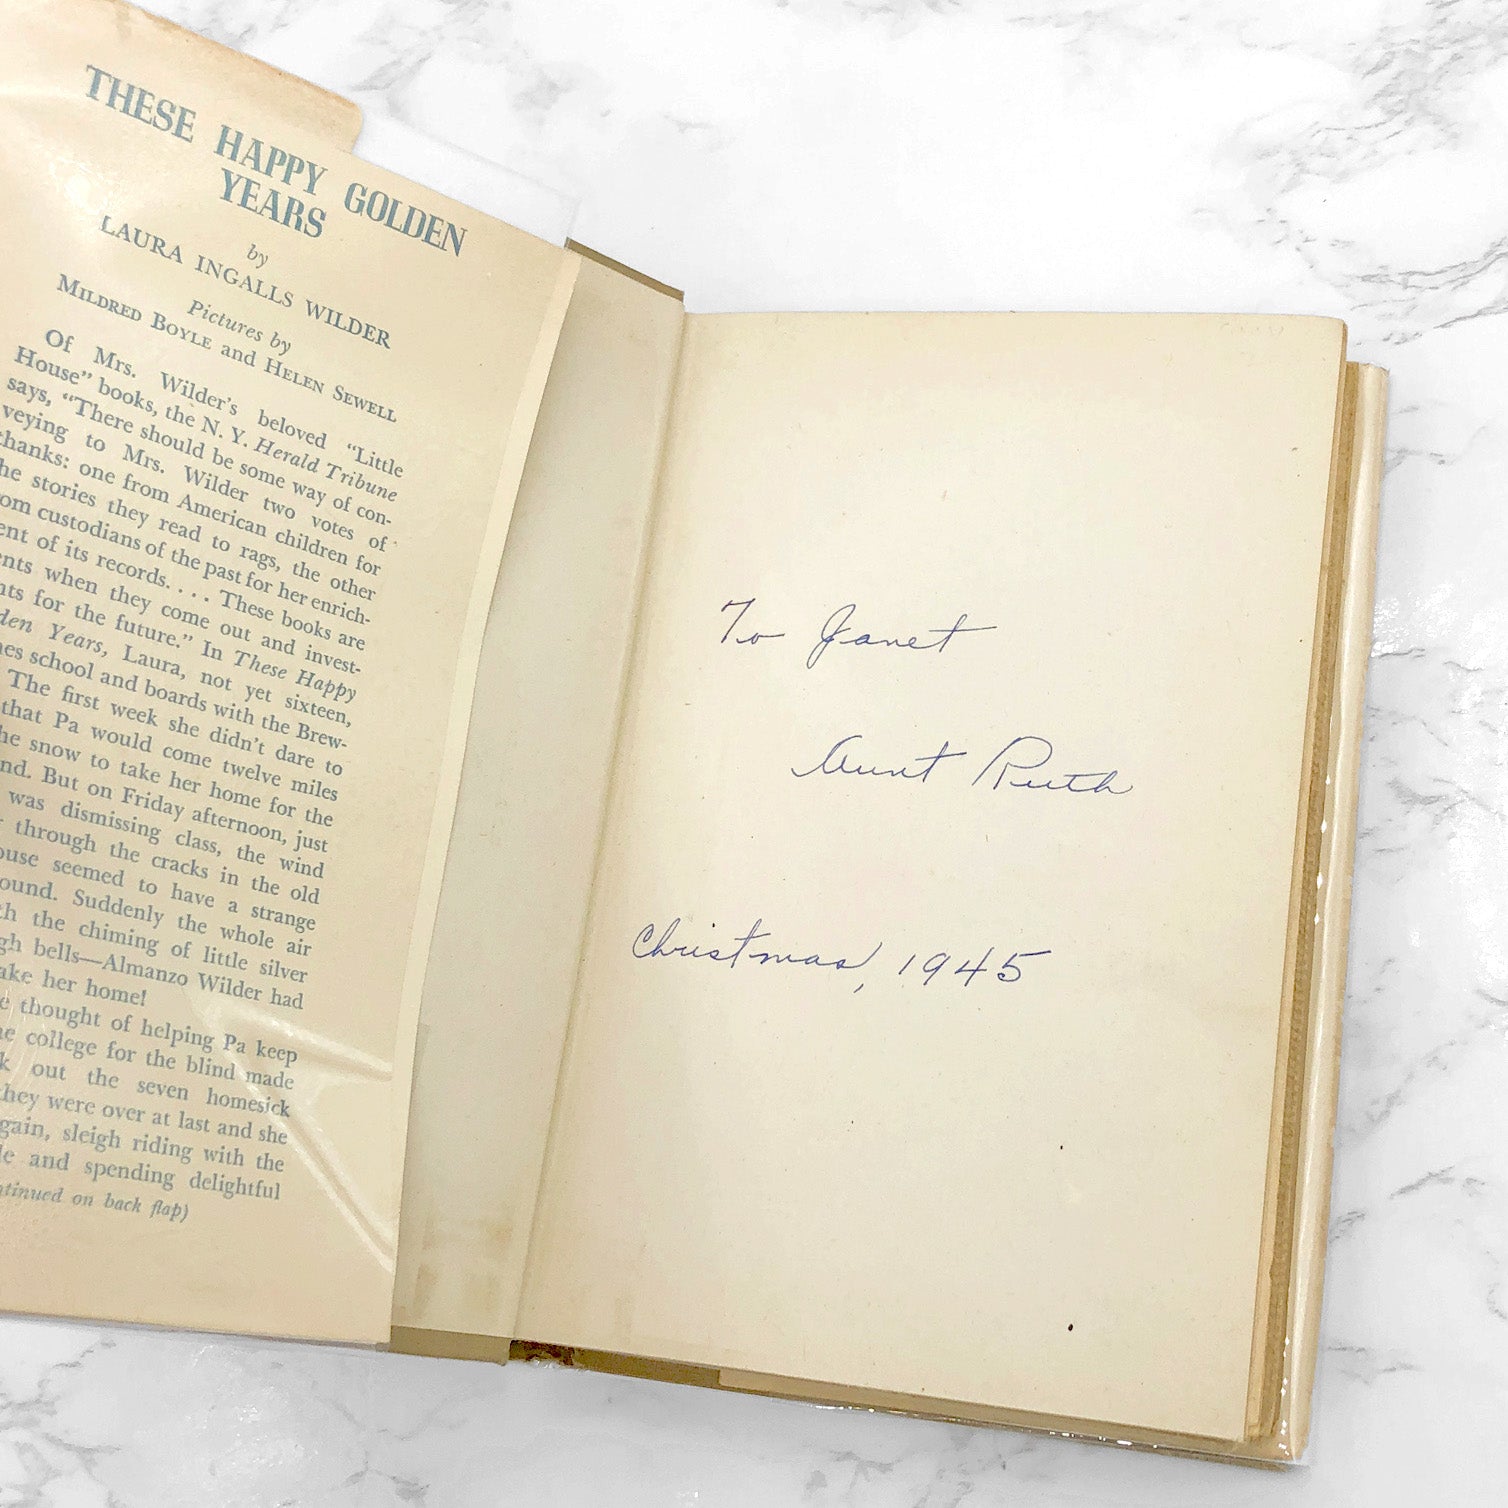 THESE HAPPY GOLDEN
YEARS
by
LAURA INGALLS WILDER
Pictures by
MILDRED BOYLE and HELEN SEWELL
Of Mrs. Wilder's beloved "Little
House" books, the N. Y. Herald Tribune
says, "There should be some way of con-
veying to Mrs. Wilder two votes of
thanks: one from American children for
he stories they read to rags, the other
om custodians of the past for her enrich-
ent of its records. . . . These books are
nts when they come out and invest-
nts for the future." In These Happy
den Years, Laura, not yet sixteen,
hes school and boards with the Brew-
The first week she didn't dare to
that Pa would come twelve miles
he snow to take her home for the
nd. But on Friday afternoon, just
was dismissing class, the wind
through the cracks in the old
ouse seemed to have a strange
ound. Suddenly the whole air
th the chiming of little silver
gh bells—Almanzo Wilder had
ake her home!
e thought of helping Pa keep
he college for the blind made
k out the seven homesick
they were over at last and she
gain, sleigh riding with the
le and spending delightful
ntinued on back flap)
To Janet
Aunt Ruth
Christmas, 1945